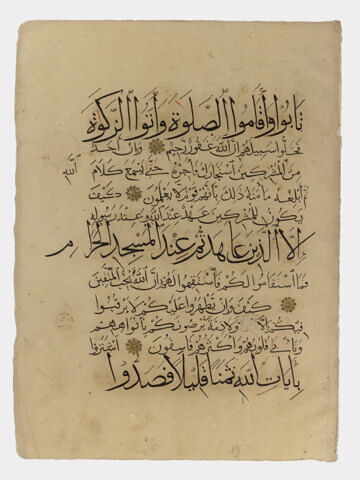 تابوا وأقاموا الصلوة وآتوا الزكوة
فخلوا سبيلهم إن الله غفور رحيم وإن أحد
من المشركين استجارك فأجره حتى يسمع كلام الله
ثم أبلغه مأمنه ذلك بأنهم قوم لا يعلمون كيف
يكون للمشركين عهد عند الله وعند رسوله
إلا الذين عاهدتم عند المسجد الحرام
فما استقاموا لكم فاستقيموا لهم إن الله يحب المتقين
كيف وإن يظهروا عليكم لا يرقبوا
فيكم إلا ولا ذمة يرضونكم بأفواههم
وتأبى قلوبهم وأكثرهم فاسقون اشتروا
بآيات الله ثمنا قليلا فصدوا